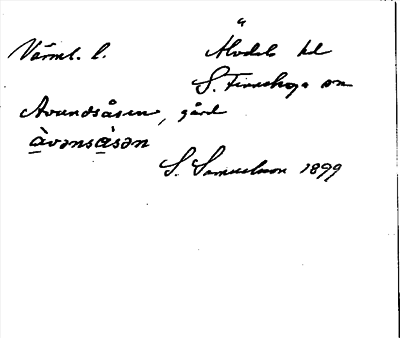 Värml. l. Älvdals hd
S. Finnskoga sn
Avundsåsen, gård
àvənsàsən
S. Samuelsson 1899